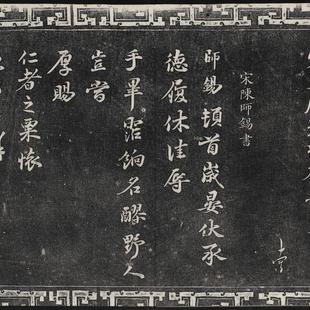 宋陳師錫書
師錫頓首歲晏伏承
德履休佳辱
手畢霑餉名醪野人
豈當
厚賜
仁者之粟懷